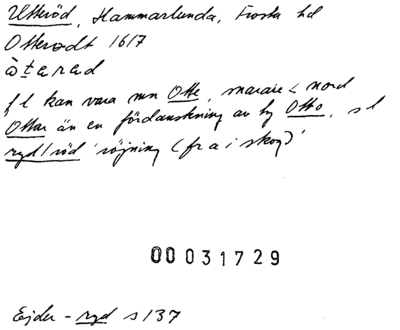 Utteröd, Hammarlunda, Frosta hd
Otterødt 1617
àtarad
f l kan vara mn Otte, snarare < nord
Ottar än en fördanskning av ty Otto, s l
ryd/röd 'röjning (fr a i skog)'
00031729
Ejder - ryd s 137